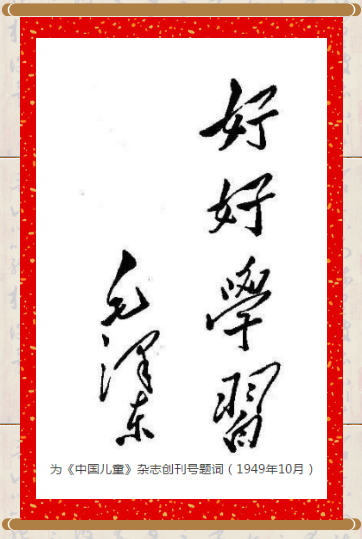 好好學習
毛澤东
为《中国儿童》杂志创刊号题词（1949年10月）